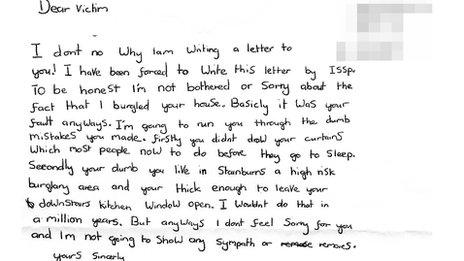 Dear Victim
I dont no Why Iam Writing a letter to
you! I have been forced to Write this letter by ISSP.
To be honest I'm not bothered or Sorry about the
fact that I burgled your house. Basicly it Was your
fault anyways. I'm going to run you through the dumb
mistakes you made. firstly you didnt draw your curtains
Which most people now to do before they go to Sleep.
Secondly your dumb you live in Stainburns a high risk
burglary area and your thick enough to leave your
downstairs kitchen Window open. I Wouldnt do that in
a million years. But anyways I dont feel Sorry for you
and Im not going to Show any Sympath or remores.
yours Sincerly